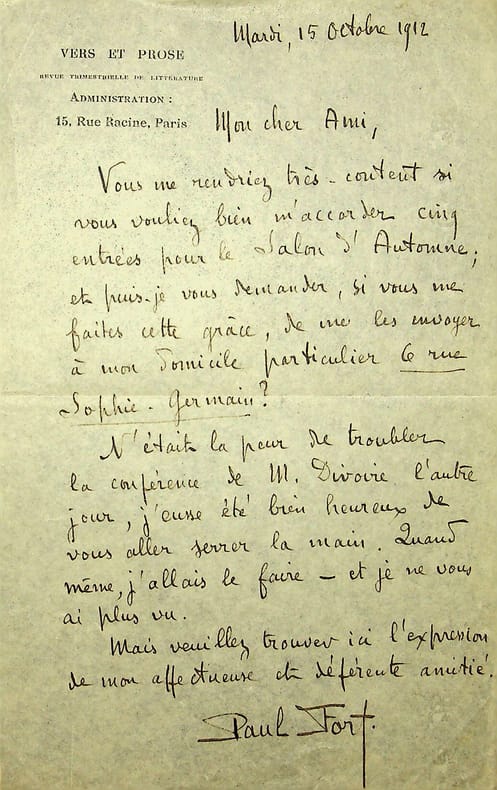 Mardi, 15 Octobre 1912
VERS ET PROSE
REVUE TRIMESTRIELLE DE LITTÉRATURE
ADMINISTRATION :
15, Rue Racine, Paris
Mon cher Ami,
Vous me rendriez très-content si
vous vouliez bien m'accorder cinq
entrées pour le Salon d'Automne;
et puis-je vous demander, si vous me
faites cette grâce, de me les envoyer
à mon domicile particulier 6 rue
Sophie-Germain?
N'était la peur de troubler
la conférence de M. Divoire l'autre
jour, j'eusse été bien heureux de
vous aller serrer la main. Quand
même, j'allais le faire — et je ne vous
ai plus vu.
Mais veuillez trouver ici l'expression
de mon affectueuse et déférente amitié.
Paul Fort.